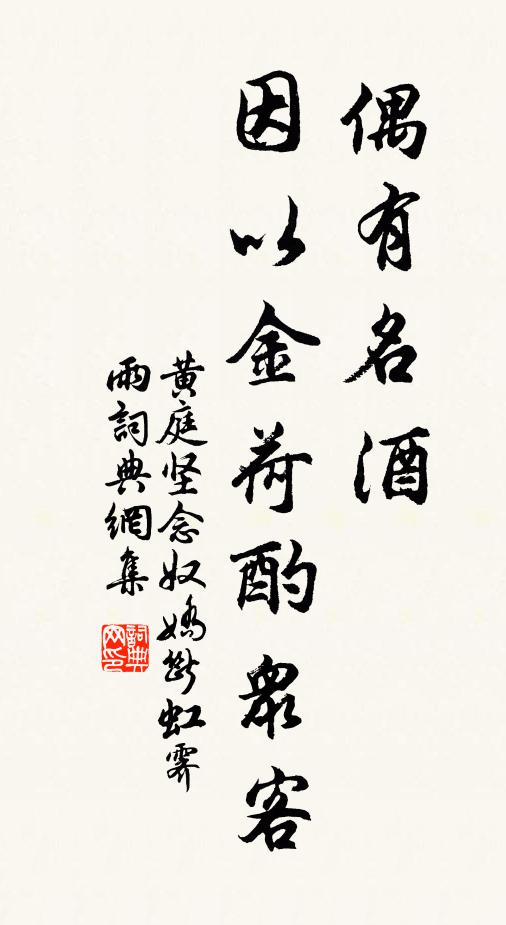 偶有名酒
因以金荷酌衆客
黄庭坚念奴嬌斷虹霽
雨詞典網集
詞典
网印